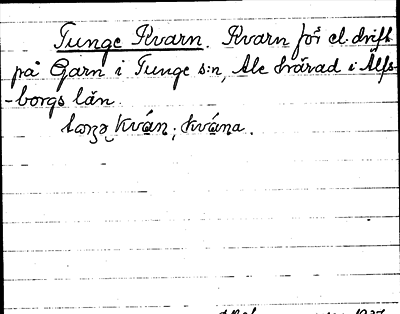 Tunge Kvarn. Kvarn för el. drift
på Garn i Tunge s:n, Ale härad i Älfs-
-borgs län.
kván; kvána.